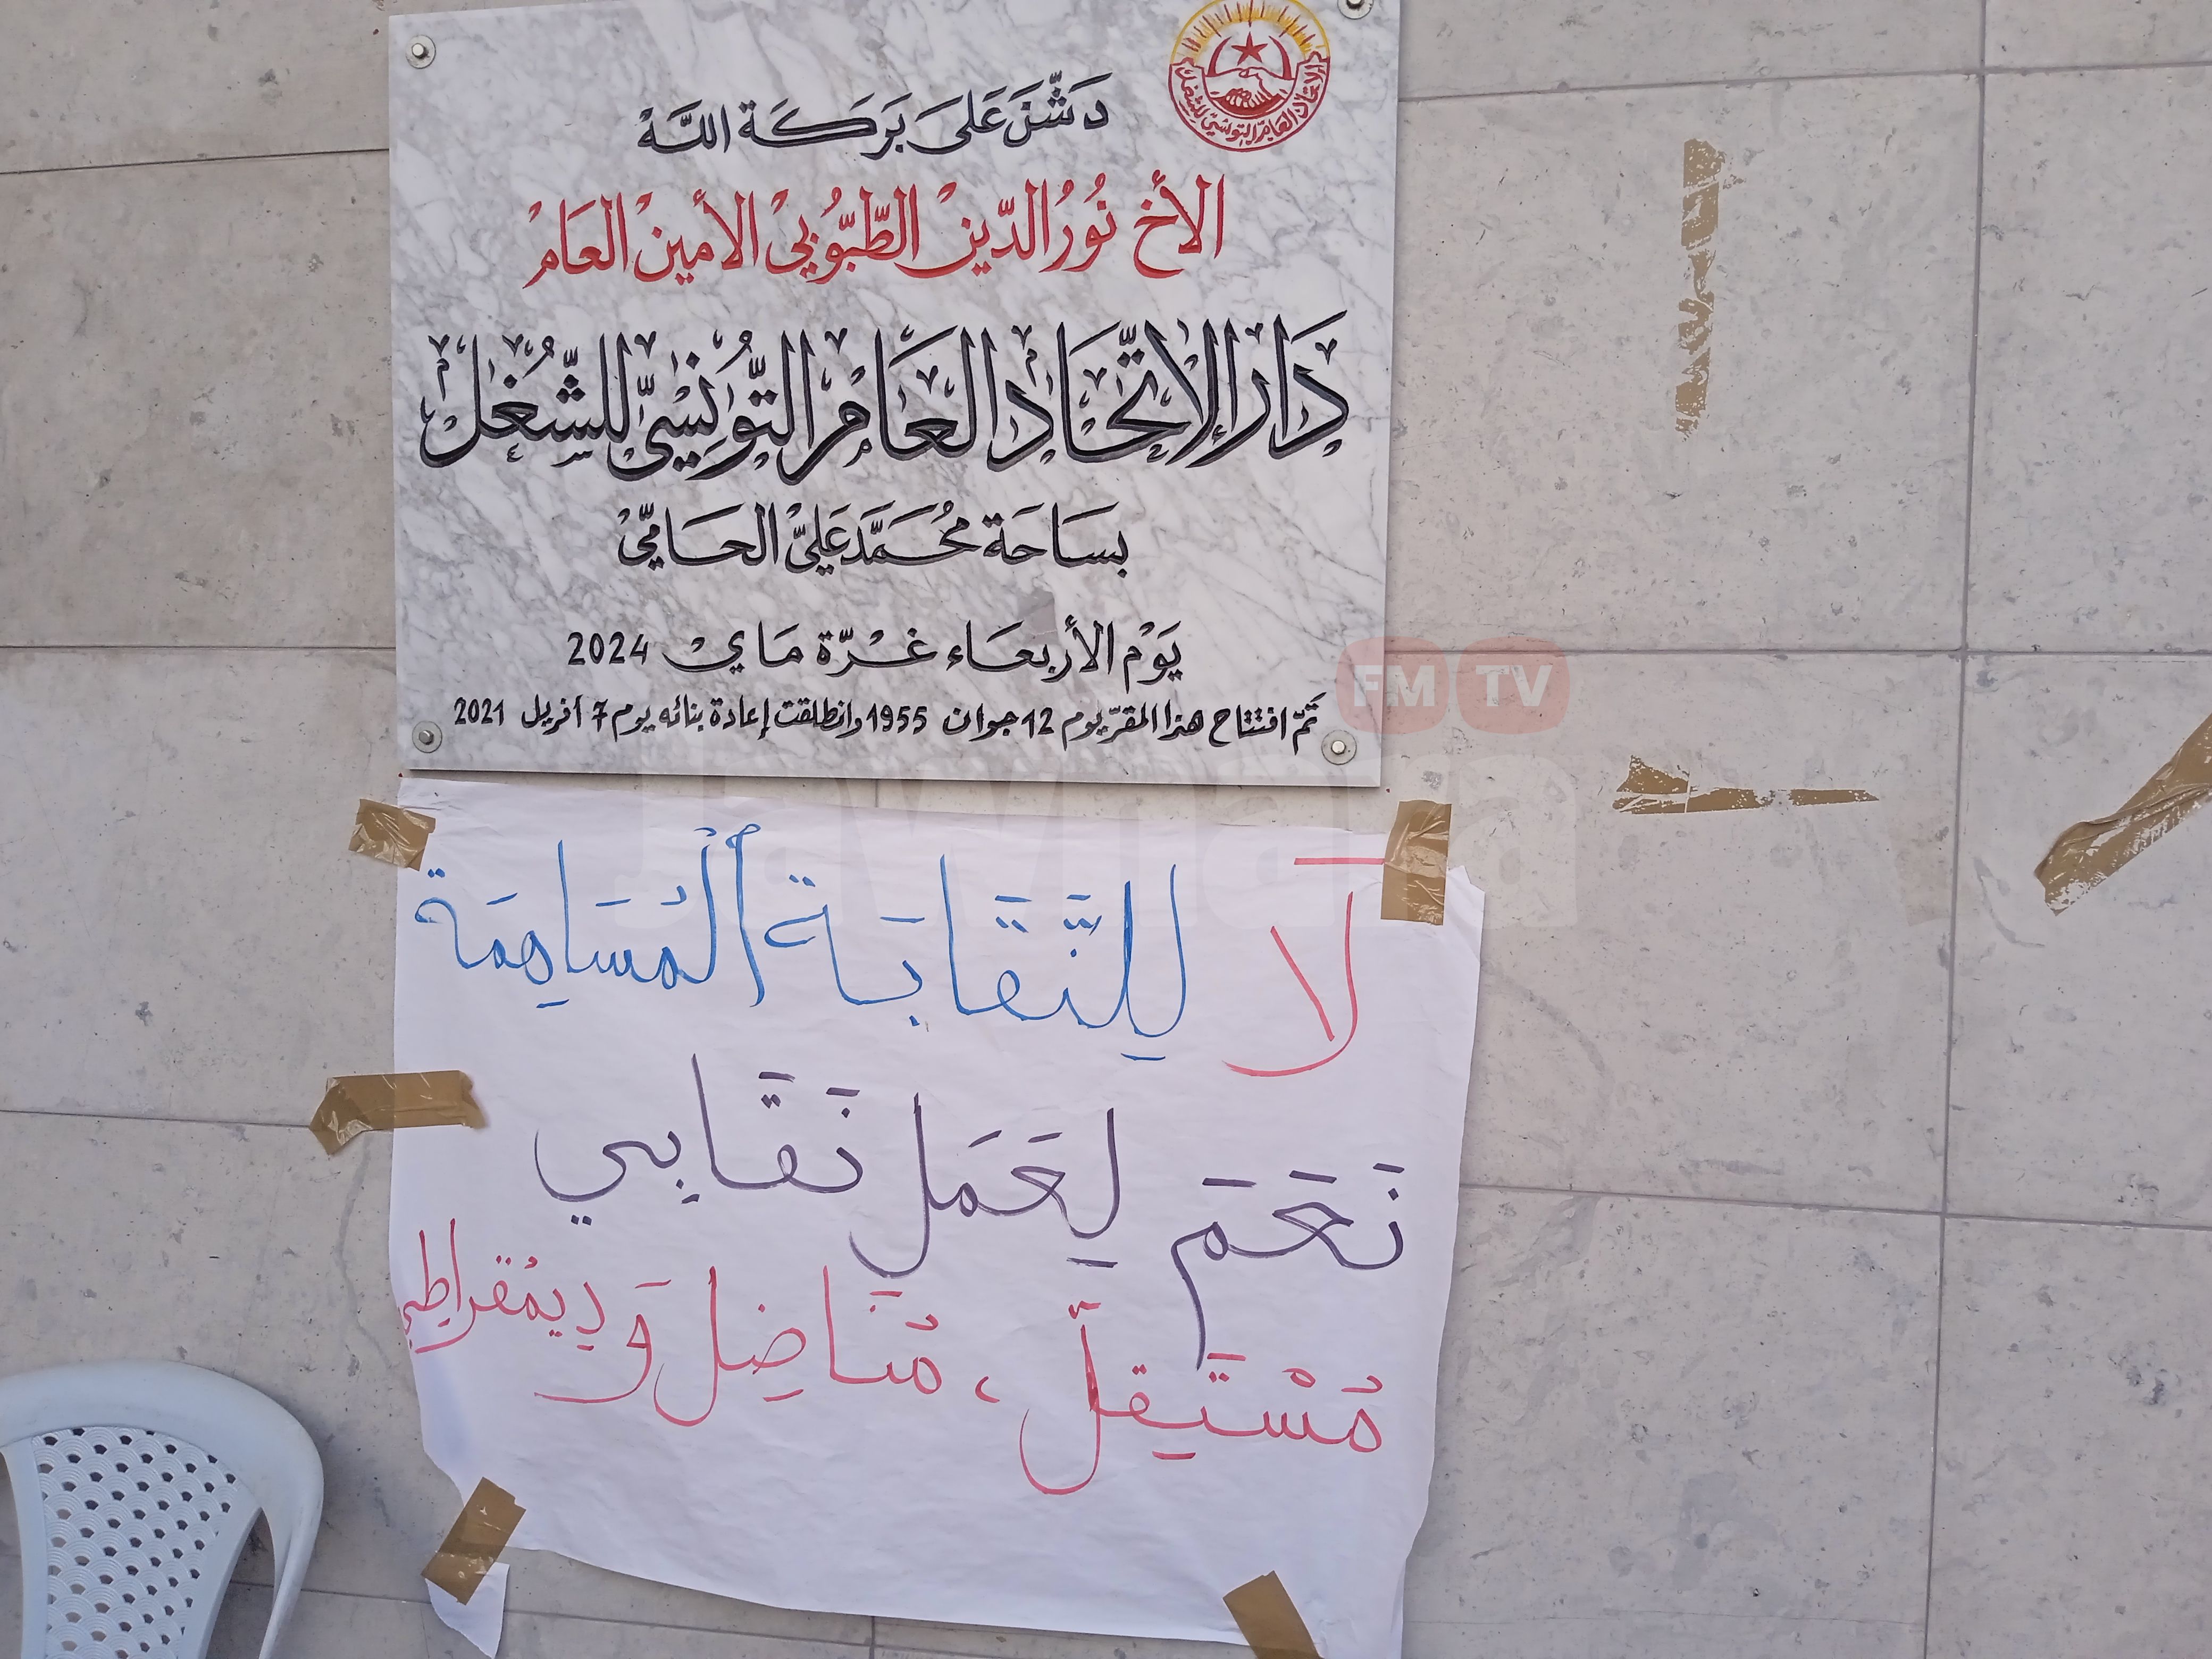 الاتحاد العام التونسي للشغل
دَشَّنَ عَلَى بَرَكَة اللَّهْ
الأخ نُورُ الدّينْ الطّبّوُبيْ الأمينْ العَامْ
دَار الاتّحَاد العَام التُّونِسيّ للشّغُل
بسَاحَة مُحَمَّد عَليّْ الحَامّيْ
يَوْم الأربعَاء غـْرّة مَايْ 2024
تَمّ افتتاح هذا المقرّ يوم 12 جوان 1955 وانطلقت إعادة بنائه يوم 7 أفريل 2021
FM TV
Jawhara
لَا لِلنَّقَابَة ٱلْمُسَاهِمَة
نَعَمَ لِعَمَلٍ نَقَابِي
مُسْتَقِلّ، مُنَاضِل وَ دِيمُقراطِي